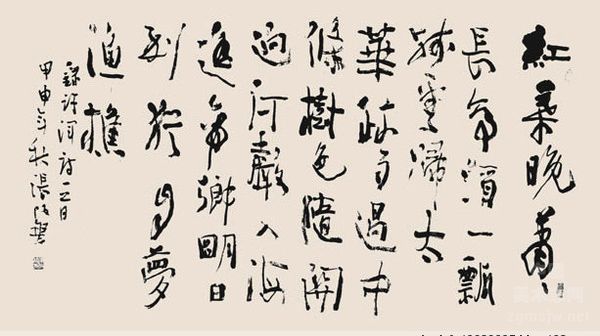 紅葉晚蕭〻
長亭酒一瓢
殘雲歸太
華疏雨過中
條樹色隨關
迥河聲入海
遙帝鄉明日
到猶自夢
漁樵
錄許渾詩
甲申年秋張改琴